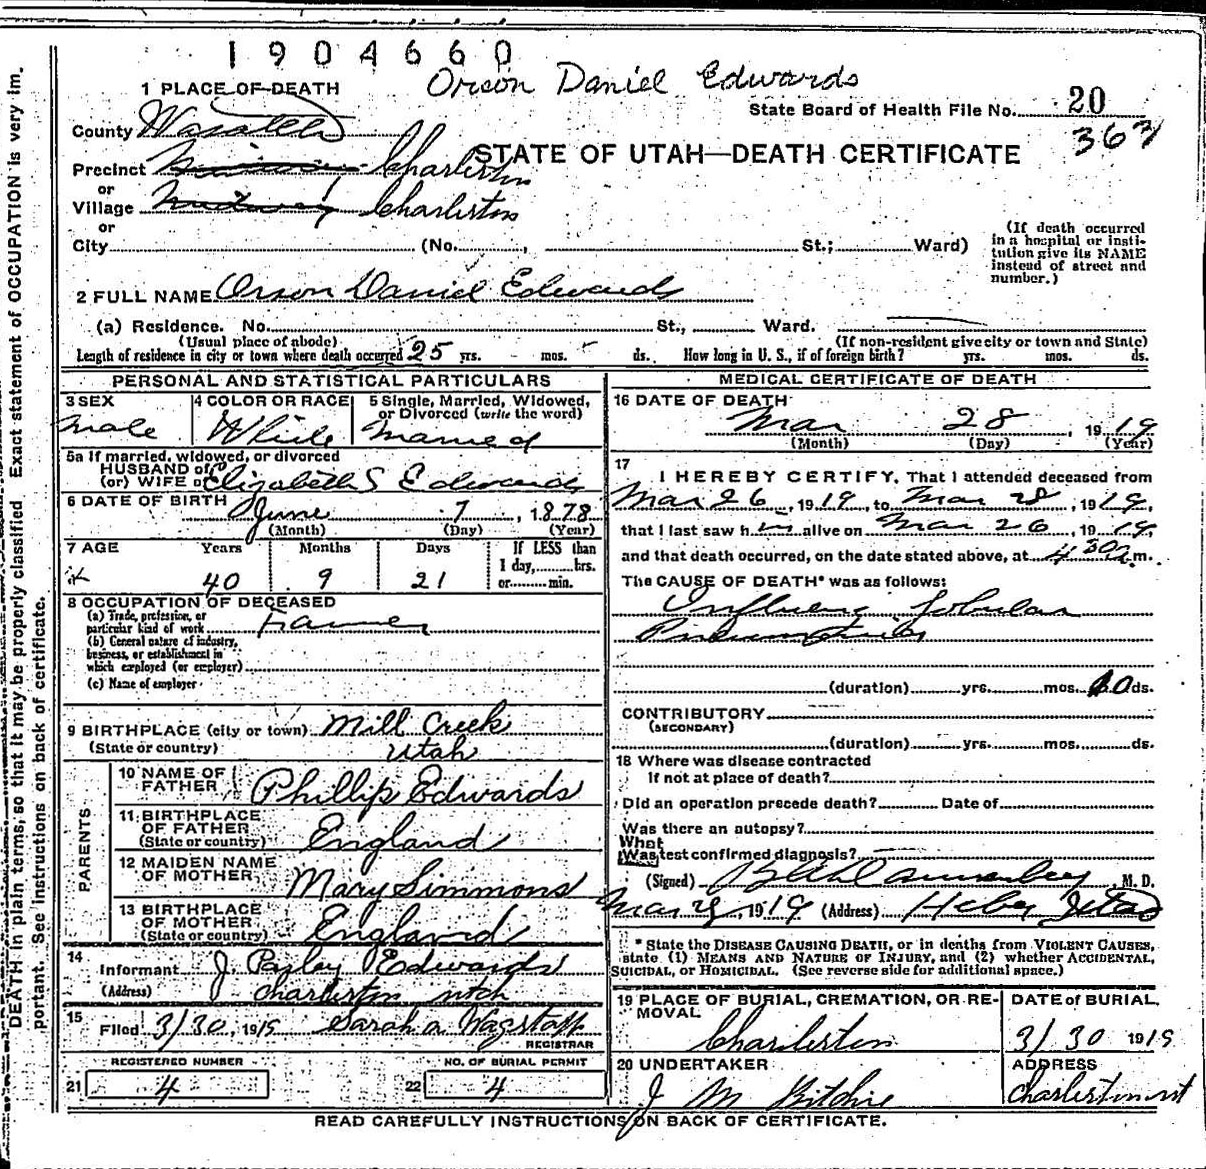 1904660
Orson Daniel Edwards
1 PLACE OF DEATH
State Board of Health File No. 20
363
County Wasatch
STATE OF UTAH—DEATH CERTIFICATE
Precinct Charleston
or
Village Midway Charleston
or
City (No. , St.; Ward)
(If death occurred
in a hospital or insti-
tution give its NAME
instead of street and
number.)
2 FULL NAME Orson Daniel Edwards
(a) Residence. No. St., Ward.
(Usual place of abode) (If non-resident give city or town and State)
Length of residence in city or town where death occurred 25 yrs. - mos. - ds. How long in U. S., if of foreign birth? yrs. mos. ds.
PERSONAL AND STATISTICAL PARTICULARS
3 SEX
Male
4 COLOR OR RACE
White
5 Single, Married, Widowed,
or Divorced (write the word)
Married
5a If married, widowed, or divorced
HUSBAND of
(or) WIFE of Elizabeth S Edwards
6 DATE OF BIRTH June 7, 1878
(Month) (Day) (Year)
7 AGE Years Months Days
If LESS than
1 day, hrs.
or min.
40 9 21
8 OCCUPATION OF DECEASED
(a) Trade, profession, or
particular kind of work Farmer
(b) General nature of industry,
business, or establishment in
which employed (or employer)
(c) Name of employer
9 BIRTHPLACE (city or town) Mill Creek
(State or country) Utah
PARENTS
10 NAME OF
FATHER Phillip Edwards
11 BIRTHPLACE
OF FATHER
(State or country) England
12 MAIDEN NAME
OF MOTHER Mary Simmons
13 BIRTHPLACE
OF MOTHER
(State or country) England
14
Informant J. Parley Edwards
(Address) Charleston utah
15
Filed 3/30, 1919 Sarah A Wagstaff
REGISTRAR
REGISTERED NUMBER
21 4
NO. OF BURIAL PERMIT
22 4
MEDICAL CERTIFICATE OF DEATH
16 DATE OF DEATH
Mar 28, 1919
(Month) (Day) (Year)
17
I HEREBY CERTIFY, That I attended deceased from
Mar 26, 1919, to Mar 28, 1919,
that I last saw him alive on Mar 26, 1919,
and that death occurred, on the date stated above, at 4 30 m.
The CAUSE OF DEATH* was as follows:
Influenza Lobular
(duration) yrs. mos. 10 ds.
CONTRIBUTORY
(SECONDARY)
(duration) yrs. mos. ds.
18 Where was disease contracted
If not at place of death?
Did an operation precede death? Date of
Was there an autopsy?
What
Was test confirmed diagnosis?
(Signed) M. D.
Mar, 1919 (Address) Heber Utah
* State the DISEASE CAUSING DEATH, or in deaths from VIOLENT CAUSES,
state (1) MEANS AND NATURE OF INJURY, and (2) whether ACCIDENTAL,
SUICIDAL, or HOMICIDAL. (See reverse side for additional space.)
19 PLACE OF BURIAL, CREMATION, OR RE-
MOVAL
Charleston
DATE of BURIAL,
3/30 1919
20 UNDERTAKER
J M Ritchie
ADDRESS
Charleston ut
READ CAREFULLY INSTRUCTIONS ON BACK OF CERTIFICATE.
DEATH in plain terms, so that it may be properly classified Exact statement of OCCUPATION is very im-
portant. See instructions on back of certificate.